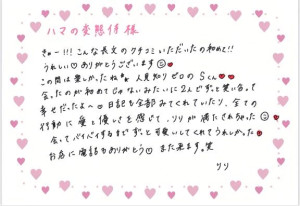 ハマの変態侍様
きゅー!!!こんな長文のクチコミいただいたの初めて!!
うれしい♡ありがとうございます☺♥
この間は楽しかったね 人見知りゼロのSくん♥♥
会ったのが初めてじゃないみたいに2人でずっと笑い合って
幸せだったよ〜♡日記も全部みてくれていたり、全ての
行動に愛と優しさを感じて、リリが満たされちゃった☺♥
会ってバイバイするまでずーっと可愛いしてくれてうれしかった♥
お店に電話もありがとう♡また来ます。笑
リリ